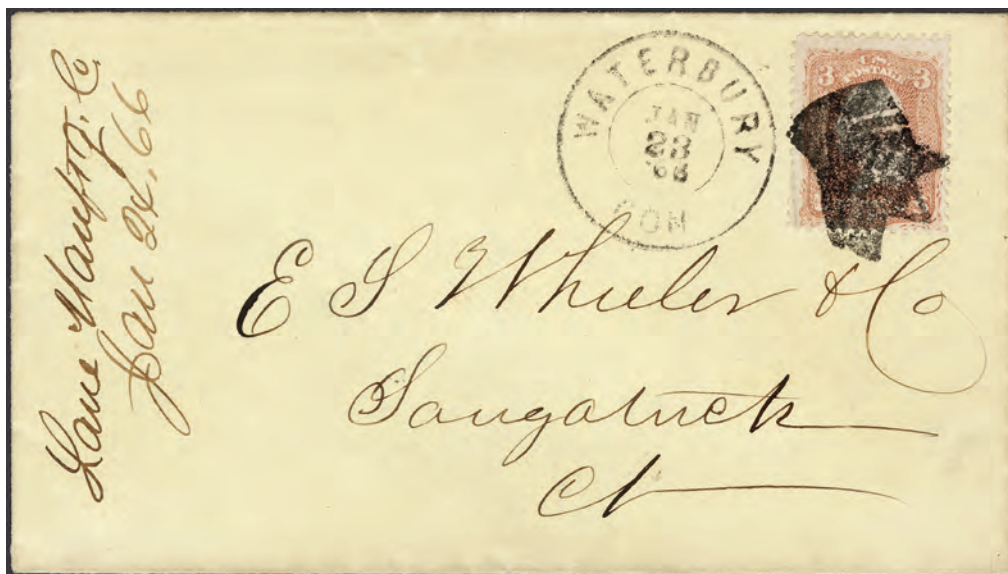 Lane Manufg. Co
Jan 24. 66
WATERBURY
JAN
23
'66
CON
3 U.S. POSTAGE 3
E S Wheeler & Co
Saugatuck
Ct